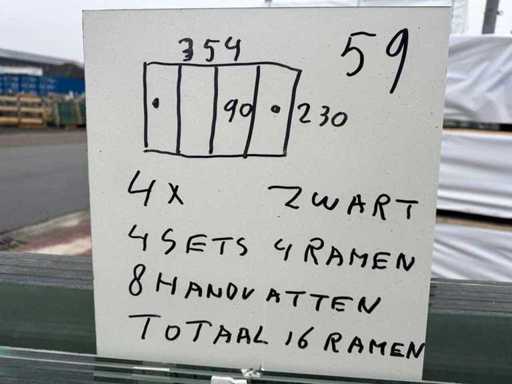 354
59
90
230
4X ZWART
4 SETS 4 RAMEN
8 HANDVATTEN
TOTAAL 16 RAMEN